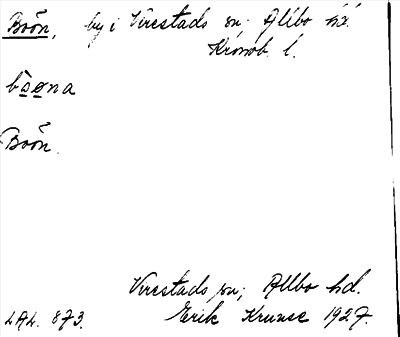 Boön, by i Virestads sn; Allbo hd.
Kronob. l.
bo̱o̱na
Boön.
Virestads sn; Allbo hd.
LAL. 873. Erik Kruuse 1927.